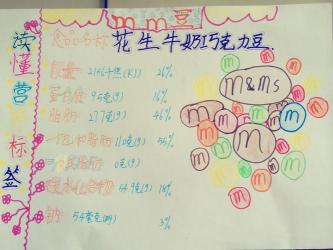 读懂营养标签
mm豆
食品名称 花生牛奶巧克力豆
能量 2146千焦(KJ) 26%
蛋白质 9.5克(g) 16%
脂肪 27.7克(g) 46%
饱和脂肪 11.0克(g) 55%
脂肪 0克(g)
碳水化合物 54.9克(g) 18%
钠 54毫克(mg) 3%
m&m's
m
m
m
m
m
m
m
m
m
m
m